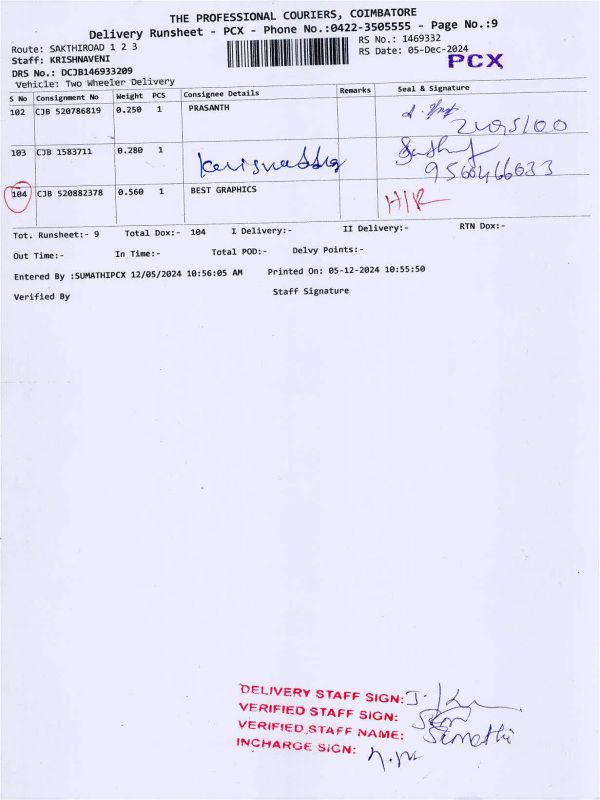 THE PROFESSIONAL COURIERS, COIMBATORE
Delivery Runsheet - PCX - Phone No.:0422-3505555 - Page No.:9
Route: SAKTHIROAD 1 2 3
RS No.: 1469332
Staff: KRISHNAVENI
RS Date: 05-Dec-2024
PCX
DRS No.: DCJB146933209
Vehicle: Two Wheeler Delivery
S No Consignment No Weight PCS Consignee Details Remarks Seal & Signature
102 CJB 520786819 0.250 1 PRASANTH
103 CJB 1583711 0.280 1
104 CJB 520882378 0.560 1 BEST GRAPHICS H/R
Tot. Runsheet:- 9 Total Dox:- 104 I Delivery:- II Delivery:- RTN Dox:-
Out Time:- In Time:- Total POD:- Delvy Points:-
Entered By :SUMATHIPCX 12/05/2024 10:56:05 AM Printed On: 05-12-2024 10:55:50
Verified By Staff Signature
DELIVERY STAFF SIGN:
VERIFIED STAFF SIGN:
VERIFIED STAFF NAME: Sumathi
INCHARGE SIGN: